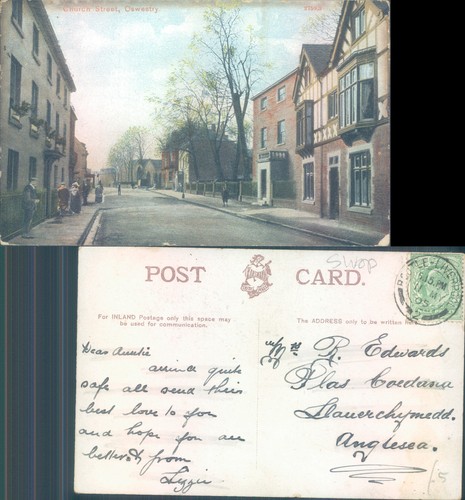 Church Street, Oswestry.
Swop
POST CARD.
For INLAND Postage only this space may
be used for communication.
The ADDRESS only to be written here
Dear Auntie
arrived quite
safe all send their
best love to you
and hope you are
better from
Lizzie
R. Edwards
Plas Coedana
Llanerchymedd.
Anglesea.